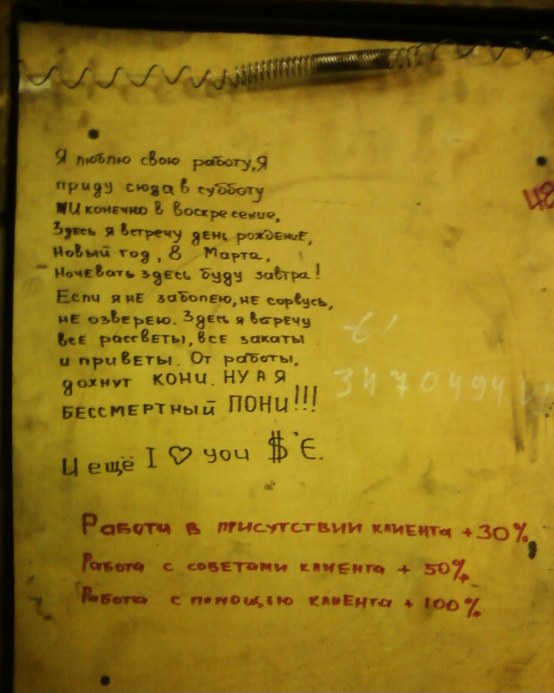 Я люблю свою работу, Я
приду сюда в субботу
И конечно в воскресение.
Здесь я встречу день рождение,
Новый год, 8 Марта.
Ночевать здесь буду завтра!
Если я не заболею, не сорвусь,
не озверею. Здесь я встречу
все рассветы, все закаты
и приветы. От работы,
дохнут кони. Ну а я
БЕССМЕРТНЫЙ ПОНИ!!!
И ещё I ♡ you $ €.
48
3470494
Работа в присутствии клиента + 30%
Работа с советами клиента + 50%
Работа с помощью клиента + 100%